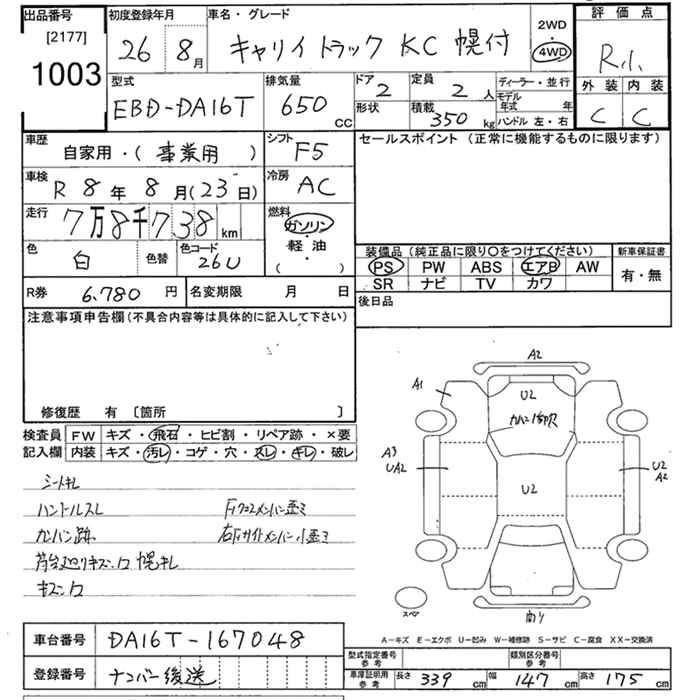 出品番号 初度登録年月 車名・グレード 評価点
[2177]
1003
26 8月 キャリイ トラック KC 幌付
2WD
・
4WD
R小
外装 内装
C C
型式 排気量 ドア 定員 ディーラー・並行
EBD-DA16T 650 CC 2 2人
モデル年式 年
形状 積載 350 kg ハンドル 左・右
車歴 自家用・(事業用) シフト F5
セールスポイント (正常に機能するものに限ります)
車検 R 8年 8月(23日) 冷房 AC
走行 7万8千738 km 燃料 ガソリン
・
軽油
( )
色 白 色替 色コード 26U
装備品 (純正品に限り○をつけてください) 新車保証書
PS PW ABS エアB AW 有・無
SR ナビ TV カワ
R券 6,780 円 名変期限 月 日
後日品
注意事項申告欄(不具合内容等は具体的に記入して下さい)
修復歴 有 〔箇所 〕
検査員 FW キズ・飛石・ヒビ割・リペア跡・×要
記入欄 内装 キズ・汚レ・コゲ・穴・スレ・キレ・破レ
シートキレ
ハンドルスレ
カンバン跡
荷台廻りキズ凹 幌キレ
キズ凹
A2
A1
U2
A3
UA2
U2
U2
A2
スペア
A-キズ E-エクボ U-凹み W-補修跡 S-サビ C-腐食 XX-交換済
車台番号 DA16T-167048
型式指定番号 参考 類別区分番号 参考
登録番号 ナンバー後送
車庫証明用 参考 長さ 339 cm 幅 147 cm 高さ 175 cm